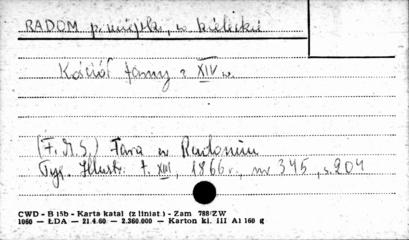 RADOM p. miejski, w. kielecki
Kościół farny z XIV w.
(F. M. S.) Fara w Radomiu
Tyg. Illustr. t. XIII, 1866 r., nr 345, s. 204
CWD - B 15b - Karta katal (z liniat.) - Zam 788/ZW
1060 — ŁDA — 21.4.60. — 2.360.000 — Karton kl. III A1 160 g